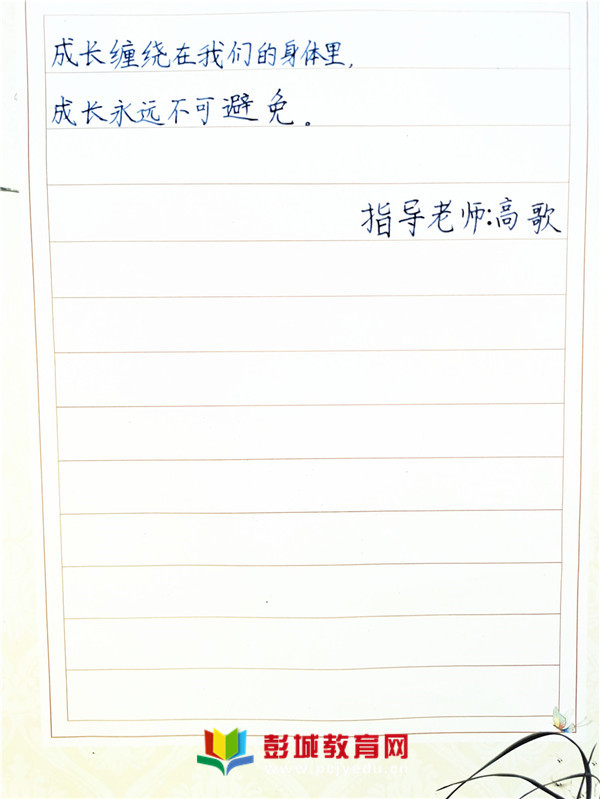 成长缠绕在我们的身体里,
成长永远不可避免。
指导老师:高歌
彭城教育网